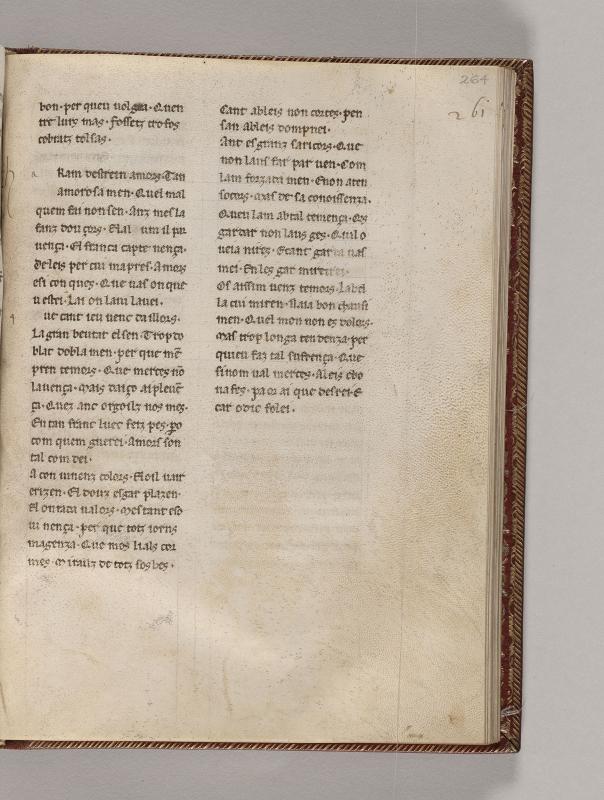 264
261
bon. per queu uolgra. Quen
tre lurs mas. fossetz tro fos
cobratz tolsas.
Ram destrein amors. Tan
amorosa men. Quel mal
quem fai non sen. Anz mes la
fanz douçors. El al um il par
uença. El franca captenença.
de leis per cui ma pres. Amors
esi conques. Que uas on que
u estei. Lai on laui lauei.
uec ant ieu uenc
La gran beutat el sen. Trop do
blar dobla men. per que
pren temors. Que merces no
la uença. mais daiço
ça. Quez anc orgoilz nos mes.
En tan franc luec
com quem guerei. Amors son
tal com dei.
A con uinenz colors. El oil uair
erizen. El douz esgar plazen.
El on tada ualors. mes tant eso
ui nença. per que totz iorns
magenza. Que mos lials cor
mes. de totz sos bes.
Cant ab leis non cortes. pen
san ab leis dompnei.
Ant es granz sa ricors. Que
non laus far par uen. Com
lam forzada men. E non aten
socors. mas de sa conoissenza.
Queu lam ab tal temença. Qes
gardar non laus ges. Quil o
ueia nires. E cant garda uas
mei. En les gar
Of aissim uenz temors. La bel
la cui miren. Naia bon chausi
men. Quel mon non es dolors.
mas trop longa tendenza. per
quieu faz tal sufrença. Que
si nom ual merces. A leis
ua fes. paor ai que desrei. E
car o dic folei.